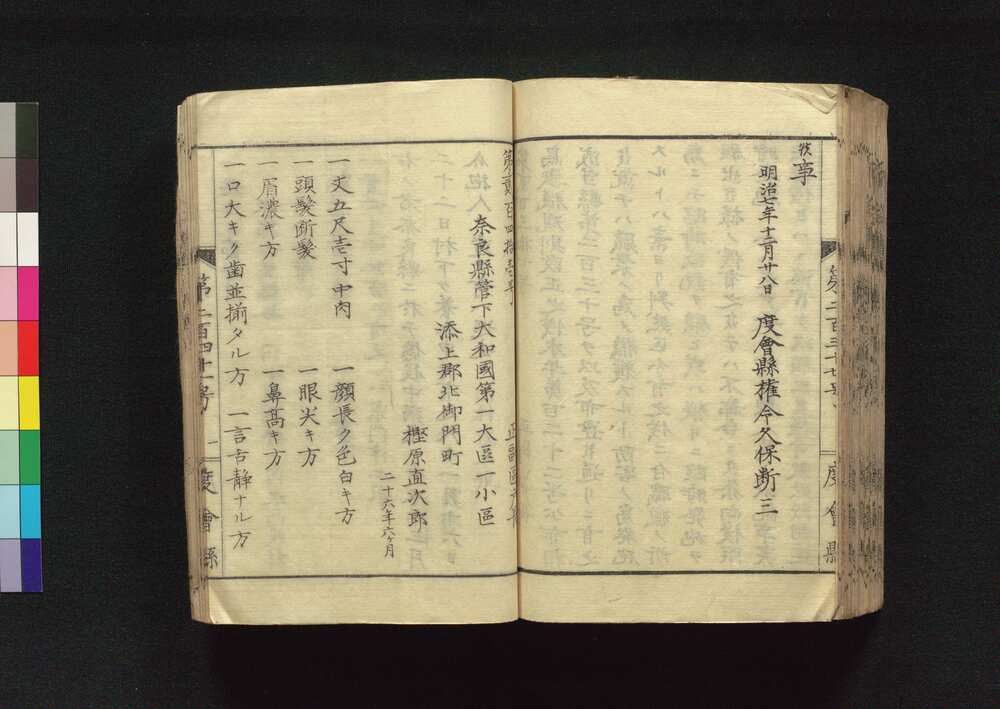 候事
明治七年十二月廿八日 度會縣權令久保断三
第二百三十七号
度會縣
第貳百四拾壱号
正副區戸長
奈良縣管下大和國第一大區一小區
添上郡北御門町
樫原直次郎
二十六年六ケ月
一丈五尺壱寸中肉 一顔長ク色白キ方
一頭髪断髪 一眼尖キ方
一眉濃キ方 一鼻高キ方
一口大キク歯並揃タル方 一言舌静ナル方
第二百四十一号
度會縣